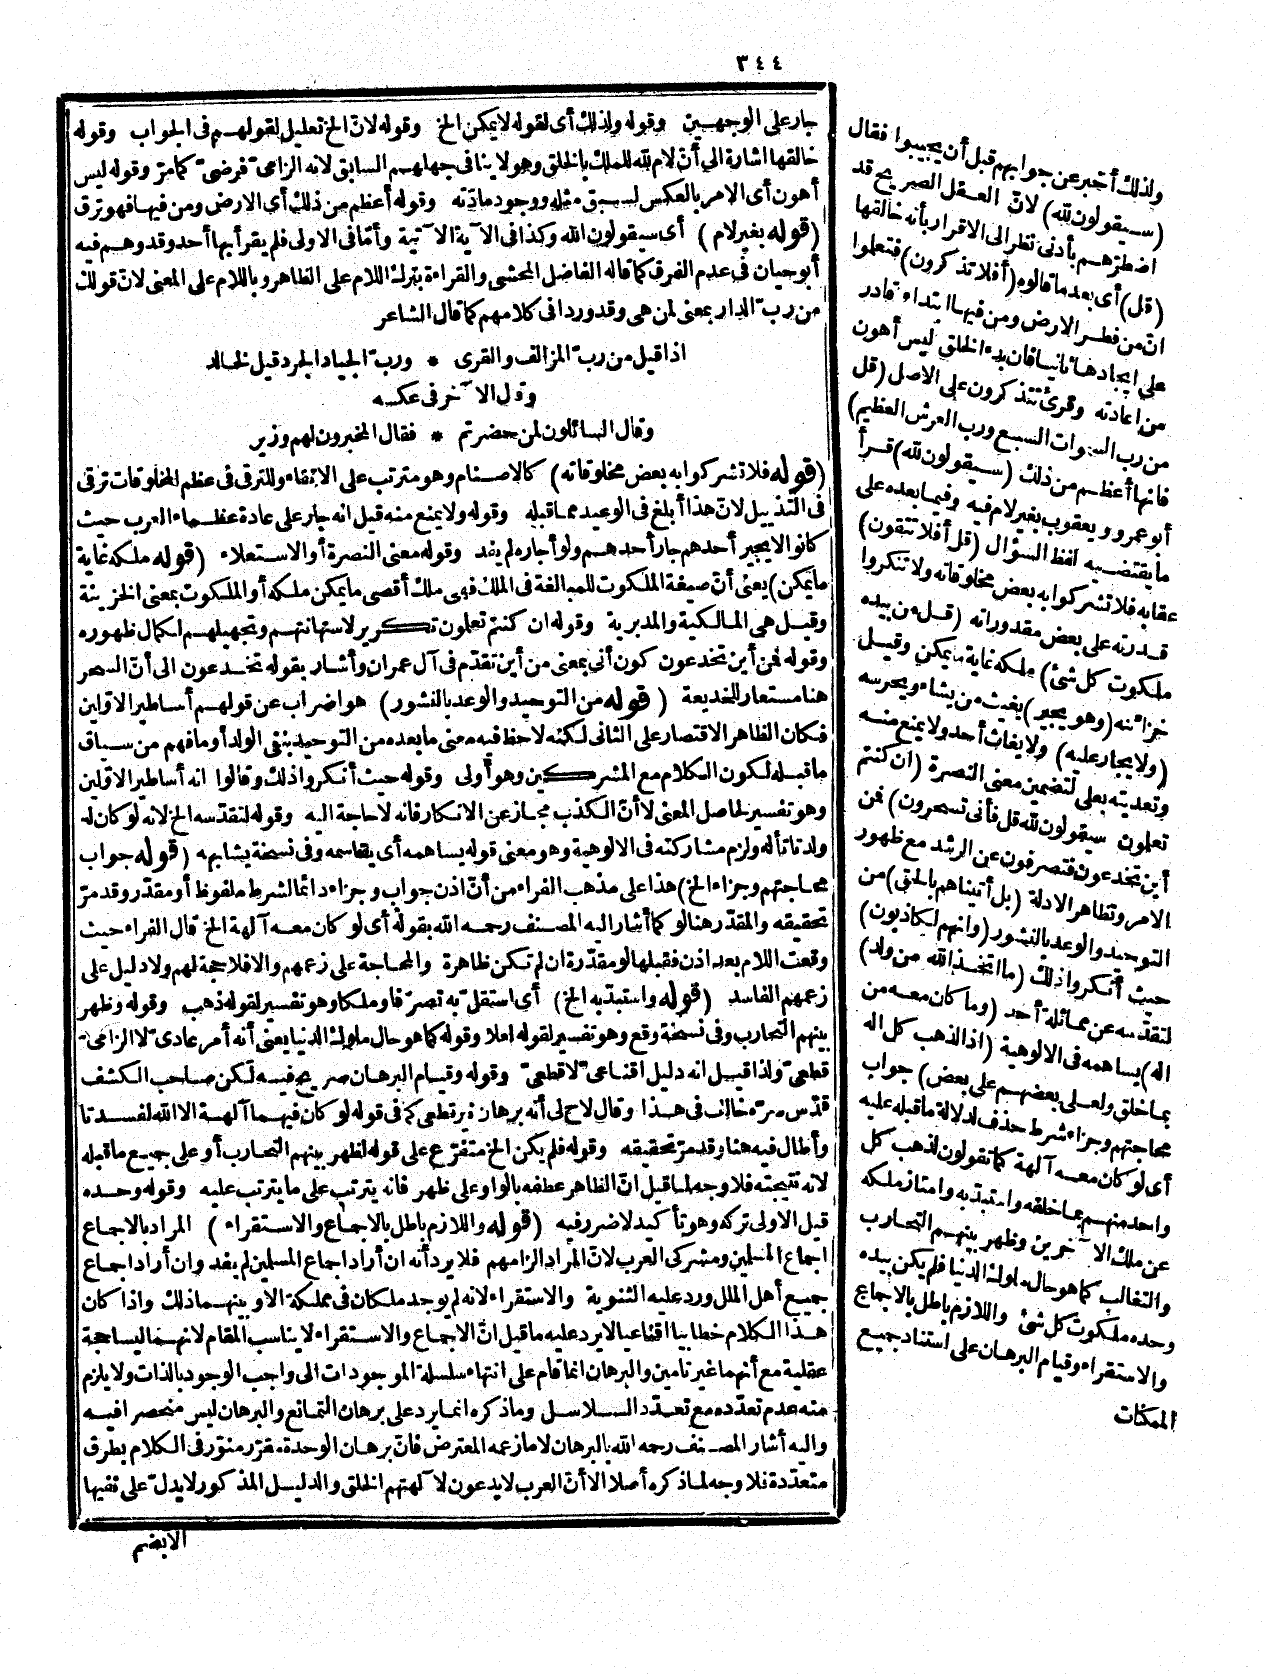 ٣٤٤
جار على الوجهين وقوله ولذلك أى لقوله لا يمكن الخ وقوله لانّ الخ تعليل لقولهم فى الجواب وقوله
خالقها اشارة الى أنّ لام لله للملك بالخلق وهو لا ينافى جهلهم السابق لانه الزامىّ فرضىّ كما مرّ وقوله ليس
أهون أى الامر بالعكس لسبق مثله ووجود مادّته وقوله أعظم من ذلك أى الارض ومن فيها فهو ترق
(قوله بغير لام) أى سيقولون الله وكذا فى الآية الآتية وأمّا فى الاولى فلم يقرأ بها أحد وقد وهم فيه
أبو حيان فى عدم الفرق كما قاله الفاضل المحشى والقراءة بترك اللام على الظاهر وباللام على المعنى لانّ قولك
من ربّ الدار بمعنى لمن هى وقد ورد فى كلامهم كما قال الشاعر
اذا قيل من ربّ المزالف والقرى * وربّ الجياد الجرد قيل لخالد
وقال الآخر فى عكسه
وقال السائلون لمن حضرتم * فقال المخبرون لهم وزير
(قوله فلا تشركوا به بعض مخلوقاته) كالاصنام وهو مترتب على الاتقاء وللترقى فى عظم المخلوقات ترقى
فى التذييل لانّ هذا أبلغ فى الوعيد مما قبله وقوله ولا يمنع منه قيل انه جار على عادة عظماء العرب حيث
كانوا لا يجير أحدهم جار أحدهم ولو أجاره لم يفد وقوله معنى النصرة أو الاستعلاء (قوله ملكه غاية
ما يمكن) يعنى أنّ صيغة الملكوت للمبالغة فى الملك فهى ملك أقصى ما يمكن ملكه أو الملكوت بمعنى الخزينة
وقيل هى المالكية والمدبرية وقوله ان كنتم تعلمون تكرير لاستهانتهم وتجهيلهم لكمال ظهوره
وقوله فمن أين تخدعون كون أنى بمعنى من أين تقدّم فى آل عمران وأشار بقوله تخدعون الى أنّ السحر
هنا مستعار للخديعة (قوله من التوحيد والوعد بالنشور) هو اضراب عن قولهم أساطير الاوّلين
فكان الظاهر الاقتصار على الثانى لكنه لاحظ فيه معنى ما بعده من التوحيد بنفى الولد أو ما فهم من سياق
ما قبله لكون الكلام مع المشركين وهو أولى وقوله حيث أنكروا ذلك وقالوا انه أساطير الاوّلين
وهو تفسير لحاصل المعنى لا أنّ الكذب مجاز عن الانكار فانه لا حاجة اليه وقوله لتقدّسه الخ لانه لو كان له
ولد تأتأله ولزم مشاركته فى الالوهية وهو معنى قوله يساهمه أى يقاسمه وفى نسخة يشابهه (قوله جواب
محاجتهم وجزاء الخ) هذا على مذهب الفراء من أنّ اذن جواب وجزاء دائما لشرط ملفوظ أو مقدّر وقد مرّ
تحقيقه والمقدّر هنا لو كما أشار اليه المصنف رحمه الله بقوله أى لو كان معه آلهة الخ قال الفراء حيث
وقعت اللام بعد اذن فقبلها لو مقدّرة ان لم تكن ظاهرة والمحاجة على زعمهم والافلا حجة لهم ولا دليل على
زعمهم الفاسد (قوله واستبدّ به الخ) أى استقلّ به تصرّفا وملكا وهو تفسير لقوله ذهب وقوله وظهر
بينهم التحارب وفى نسخة وقع وهو تفسير لقوله لعلا وقوله كما هو حال ملوك الدنيا يعنى أنه أمر عادىّ لا الزامىّ
قطعىّ ولذا قيل انه دليل اقناعىّ لا قطعىّ وقوله وقيام البرهان صريح فيه لكن صاحب الكشف
قدّس سرّه خالف فى هذا وقال لاح لى أنه برهان نير قطعى كما فى قوله لو كان فيهما آلهة الا الله لفسدتا
وأطال فيه هنا وقد مرّ تحقيقه وقوله فلم يكن الخ متفرّع على قوله لظهر بينهم التحارب أو على جميع ما قبله
لانه نتيجته فلا وجه لما قيل انّ الظاهر عطفه بالواو على ظهر فانه يترتب على ما يترتب عليه وقوله وحده
قيل الاولى تركه وهو تأكيد لا ضرر فيه (قوله واللازم باطل بالاجماع والاستقراء) المراد بالاجماع
اجماع المسلمين ومشركى العرب لانّ المراد الزامهم فلا يرد أنه ان أراد اجماع المسلمين لم يفد وان أراد اجماع
جميع أهل الملل ورد عليه الثنوية والاستقراء لانه لم يوجد ملكان فى مملكة الا وبينهما ذلك واذا كان
هذا الكلام خطابيا اقناعيا لا يرد عليه ما قيل انّ الاجماع والاستقراء لا يناسب المقام لانهما ليسا حجة
عقلية مع أنهما غير تامين والبرهان انما قام على انتهاء سلسلة الموجودات الى واجب الوجود بالذات ولا يلزم
منه عدم تعدّده مع تعدّد السلاسل وما ذكره انما يرد على برهان التمانع والبرهان ليس منحصرا فيه
واليه أشار المصنف رحمه الله بالبرهان لا ما زعمه المعترض فانّ برهان الوحدة مقرّر منوّر فى الكلام بطرق
متعدّدة فلا وجه لما ذكره أصلا الا أنّ العرب لا يدعون لآلهتهم الخلق والدليل المذكور لا يدلّ على نفيها
الابضم
ولذلك أخبر عن جوابهم قبل أن يجيبوا فقال
(سيقولون لله) لانّ العقل الصريح قد
اضطرّهم بأدنى نظر الى الاقرار بأنه خالقها
(قل) أى بعد ما قالوه (أفلا تذكرون) فتعلموا
انّ من فطر الارض ومن فيها ابتداء قادر
على ايجادها ثانيا فان بدء الخلق ليس أهون
من اعادته وقرئ تتذكرون على الاصل (قل
من رب السموات السبع ورب العرش العظيم)
فانها أعظم من ذلك (سيقولون لله) قرأ
أبو عمرو ويعقوب بغير لام فيه وفيما بعده على
ما يقتضيه لفظ السؤال (قل أفلا تتقون)
عقابه فلا تشركوا به بعض مخلوقاته ولا تنكروا
قدرته على بعض مقدوراته (قل من بيده
ملكوت كل شئ) ملكه غاية ما يمكن وقيل
خزائنه (وهو يجير) يغيث من يشاء ويحرسه
(ولا يجار عليه) ولا يغاث أحد ولا يمنع منه
وتعديته بعلى لتضمين معنى النصرة (ان كنتم
تعلمون سيقولون لله قل فأنى تسحرون) فمن
أين تخدعون فتصرفون عن الرشد مع ظهور
الامر وتظاهر الادلة (بل أتيناهم بالحق) من
التوحيد والوعد بالنشور (وانهم لكاذبون)
حيث أنكروا ذلك (ما اتخذ الله من ولد)
لتقدّسه عن مماثلة أحد (وما كان معه من
اله) يساهمه فى الالوهية (اذا لذهب كل اله
بما خلق ولعلى بعضهم على بعض) جواب
محاجتهم وجزاء شرط حذف لدلالة ما قبله عليه
أى لو كان معه آلهة كما تقولون لذهب كل
واحد منهم بما خلقه واستبدّ به وامتاز ملكه
عن ملك الآخرين وظهر بينهم التحارب
والتغالب كما هو حال ملوك الدنيا فلم يكن بيده
وحده ملكوت كل شئ واللازم باطل بالاجماع
والاستقراء وقيام البرهان على استناد جميع
الممكنات